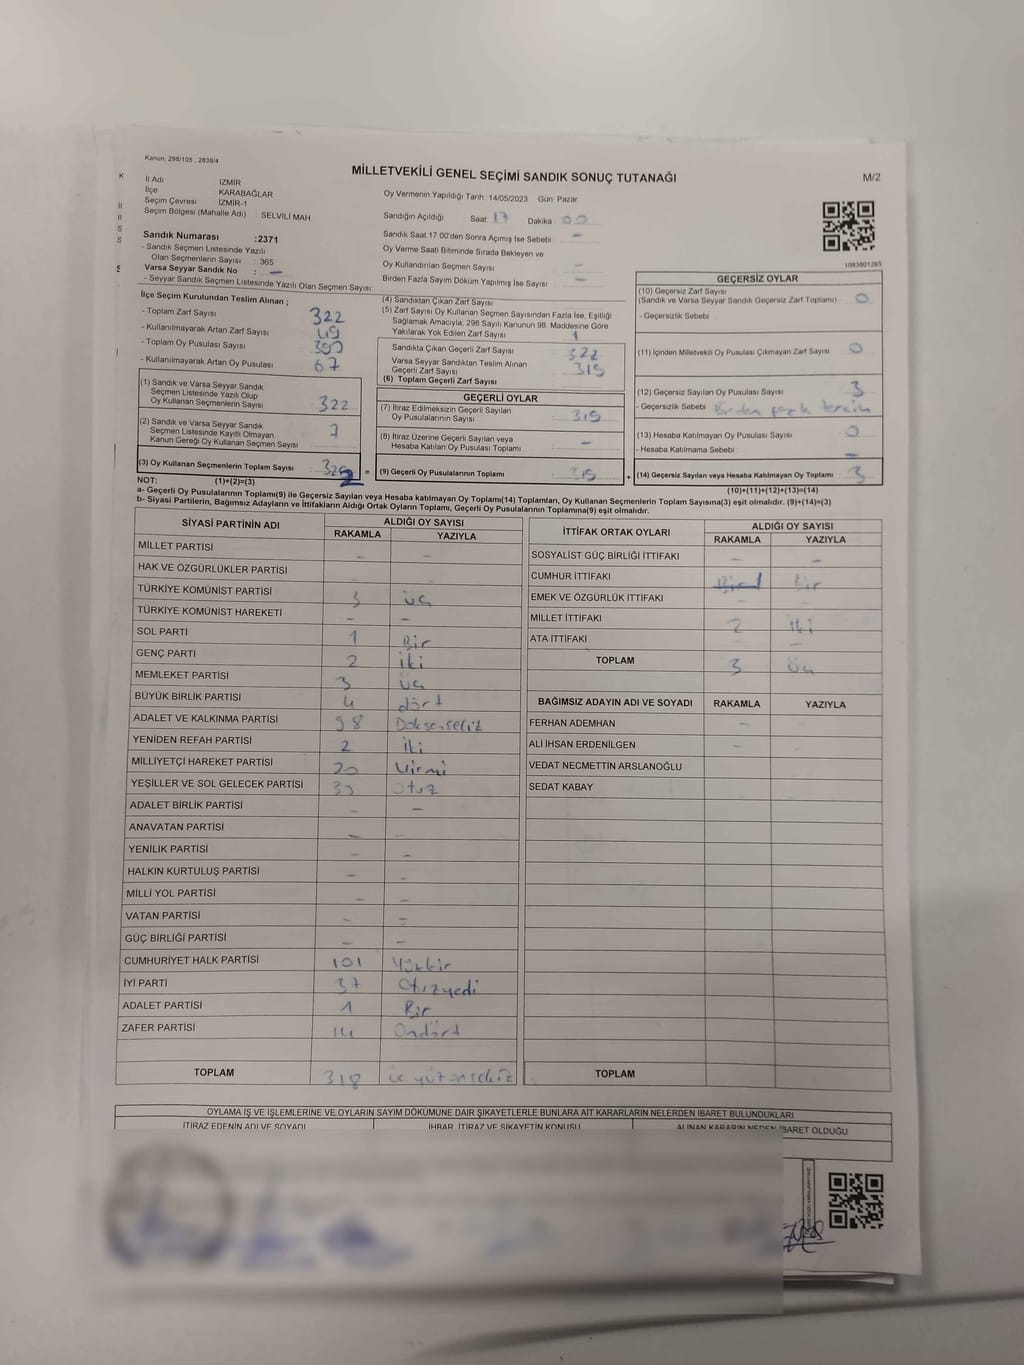 Kanun, 298/105 , 2839/4
MİLLETVEKİLİ GENEL SEÇİMİ SANDIK SONUÇ TUTANAĞI
M/2
İl Adı İZMİR
İlçe KARABAĞLAR
Seçim Çevresi İZMİR-1
Seçim Bölgesi (Mahalle Adı) SELVİLİ MAH
Oy Vermenin Yapıldığı Tarih 14/05/2023 Gün: Pazar
Sandığın Açıldığı Saat 17 Dakika 00
Sandık Numarası :2371
- Sandık Seçmen Listesinde Yazılı
Olan Seçmenlerin Sayısı : 365
Varsa Seyyar Sandık No : -
- Seyyar Sandık Seçmen Listesinde Yazılı Olan Seçmen Sayısı:
Sandık Saat 17.00'den Sonra Açımış İse Sebebi -
Oy Verme Saati Bitiminde Sırada Bekleyen ve
Oy Kullandırılan Seçmen Sayısı -
Birden Fazla Sayım Döküm Yapılmış İse Sayısı -
1083801265
İlçe Seçim Kurulundan Teslim Alınan ;
- Toplam Zarf Sayısı 322
- Kullanılmayarak Artan Zarf Sayısı
- Toplam Oy Pusulası Sayısı 390
- Kullanılmayarak Artan Oy Pusulası 67
(1) Sandık ve Varsa Seyyar Sandık
Seçmen Listesinde Yazılı Olup
Oy Kullanan Seçmenlerin Sayısı 322
(2) Sandık ve Varsa Seyyar Sandık
Seçmen Listesinde Kayıtlı Olmayan
Kanun Gereği Oy Kullanan Seçmen Sayısı
(3) Oy Kullanan Seçmenlerin Toplam Sayısı
(4) Sandıktan Çıkan Zarf Sayısı
(5) Zarf Sayısı Oy Kullanan Seçmen Sayısından Fazla İse, Eşitliği
Sağlamak Amacıyla, 298 Sayılı Kanunun 98. Maddesine Göre
Yakılarak Yok Edilen Zarf Sayısı
Sandıkta Çıkan Geçerli Zarf Sayısı 322
Varsa Seyyar Sandıktan Teslim Alınan
Geçerli Zarf Sayısı 319
(6) Toplam Geçerli Zarf Sayısı
GEÇERLİ OYLAR
(7) İtiraz Edilmeksizin Geçerli Sayılan
Oy Pusulalarının Sayısı : 319
(8) İtiraz Üzerine Geçerli Sayılan veya
Hesaba Katılan Oy Pusulası Toplamı : -
= (9) Geçerli Oy Pusulalarının Toplamı : 319 +
GEÇERSİZ OYLAR
(10) Geçersiz Zarf Sayısı
(Sandık ve Varsa Seyyar Sandık Geçersiz Zarf Toplamı) : 0
- Geçersizlik Sebebi :
(11) İçinden Milletvekili Oy Pusulası Çıkmayan Zarf Sayısı : 0
(12) Geçersiz Sayılan Oy Pusulası Sayısı : 3
- Geçersizlik Sebebi : Birden fazla tercih
(13) Hesaba Katılmayan Oy Pusulası Sayısı : 0
- Hesaba Katılmama Sebebi : -
(14) Geçersiz Sayılan veya Hesaba Katılmayan Oy Toplamı : 3
NOT: (1)+(2)=(3)
(10)+(11)+(12)+(13)=(14)
a- Geçerli Oy Pusulalarının Toplamı(9) ile Geçersiz Sayılan veya Hesaba katılmayan Oy Toplamı(14) Toplamları, Oy Kullanan Seçmenlerin Toplam Sayısına(3) eşit olmalıdır. (9)+(14)=(3)
b- Siyasi Partilerin, Bağımsız Adayların ve İttifakların Aldığı Ortak Oyların Toplamı, Geçerli Oy Pusulalarının Toplamına(9) eşit olmalıdır.
SİYASİ PARTİNİN ADI ALDIĞI OY SAYISI
RAKAMLA YAZIYLA
MİLLET PARTİSİ - -
HAK VE ÖZGÜRLÜKLER PARTİSİ
TÜRKİYE KOMÜNİST PARTİSİ 3 üç
TÜRKİYE KOMÜNİST HAREKETİ - -
SOL PARTİ 1 Bir
GENÇ PARTİ 2 iki
MEMLEKET PARTİSİ 3 üç
BÜYÜK BİRLİK PARTİSİ 4 dört
ADALET VE KALKINMA PARTİSİ 98 Doksansekiz
YENİDEN REFAH PARTİSİ 2 iki
MİLLİYETÇİ HAREKET PARTİSİ 20 Yirmi
YEŞİLLER VE SOL GELECEK PARTİSİ 30 Otuz
ADALET BİRLİK PARTİSİ - -
ANAVATAN PARTİSİ - -
YENİLİK PARTİSİ - -
HALKIN KURTULUŞ PARTİSİ - -
MİLLİ YOL PARTİSİ - -
VATAN PARTİSİ - -
GÜÇ BİRLİĞİ PARTİSİ - -
CUMHURİYET HALK PARTİSİ 101 Yüzbir
İYİ PARTİ 37 Otuzyedi
ADALET PARTİSİ 1 Bir
ZAFER PARTİSİ 14 Ondört
TOPLAM 318
İTTİFAK ORTAK OYLARI ALDIĞI OY SAYISI
RAKAMLA YAZIYLA
SOSYALİST GÜÇ BİRLİĞİ İTTİFAKI - -
CUMHUR İTTİFAKI Bir
EMEK VE ÖZGÜRLÜK İTTİFAKI
MİLLET İTTİFAKI 2 iki
ATA İTTİFAKI
TOPLAM 3 üç
BAĞIMSIZ ADAYIN ADI VE SOYADI RAKAMLA YAZIYLA
FERHAN ADEMHAN -
ALİ İHSAN ERDENİLGEN -
VEDAT NECMETTİN ARSLANOĞLU
SEDAT KABAY
TOPLAM
OYLAMA İŞ VE İŞLEMLERİNE VE OYLARIN SAYIM DÖKÜMÜNE DAİR ŞİKAYETLERLE BUNLARA AİT KARARLARIN NELERDEN İBARET BULUNDUKLARI
İTİRAZ EDENİN ADI VE SOYADI İHBAR, İTİRAZ VE ŞİKAYETİN KONUSU ALINAN KARARIN NEDEN İBARET OLDUĞU